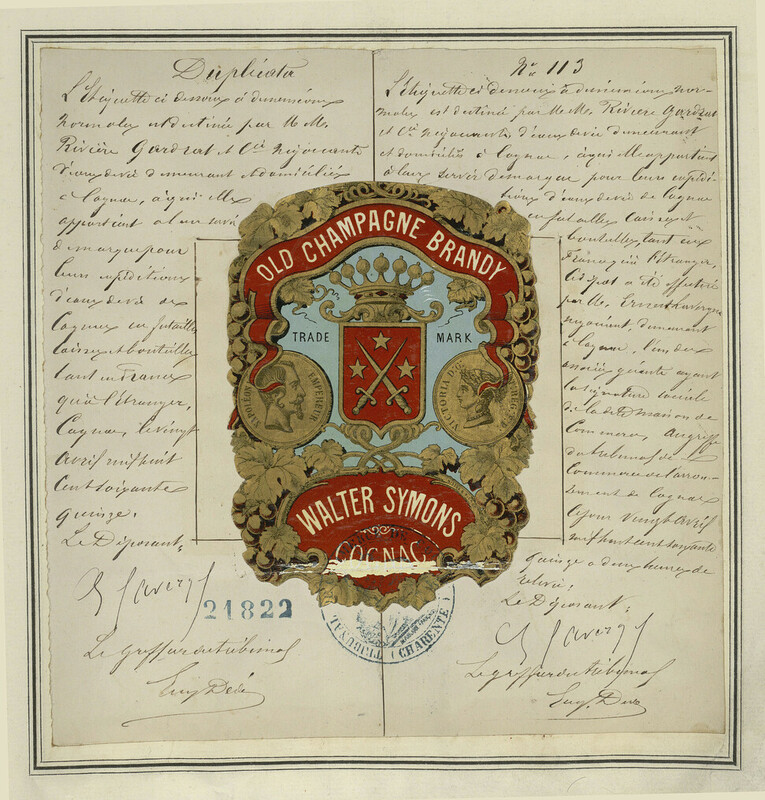 Duplicata
L'Etiquette ci dessous à dimensions
normales est destinée par M M.
Rivière Gardrat et Cie Négociants
d'eaux de vie demeurant et domiciliés
à Cognac, à qui elle
appartient à leur servir
de marque pour
leurs expéditions
d'eaux de vie de
Cognac en futailles
caisses et bouteilles
tant en France
qu'à l'étranger,
Cognac, le vingt
avril mil huit
cent soixante
quinze.
Le Déposant,
21822
Le greffier du tribunal
Eug. Dexé
No 113
L'Etiquette ci dessous à dimensions nor-
males est destiné par M M. Rivière Gardrat
et Cie Négociants d'eaux de vie demeurant
et domiciliés à Cognac, à qui elle appartient
à leur servir de marque pour leurs expédi-
tions d'eaux de vie de Cognac
en futailles caisses et
bouteilles tant en
France qu'à l'Etranger,
Dépôt a été effectué
par M. Ernest
négociant, demeurant
à Cognac, l'un des
associés gérants ayant
la signature sociale
de la dite maison de
Commerce, au greffe
du tribunal de
Commerce de l'arron-
dissement de Cognac
ce jour vingt avril
mil huit cent soixante
quinze à deux heures de
Le Déposant,
Le greffier du tribunal
Eug. Dexé
OLD CHAMPAGNE BRANDY
TRADE MARK
NAPOLÉON EMPEREUR
VICTORIA
WALTER SYMONS
COGNAC
TRIBUNAL
(CHARENTE)